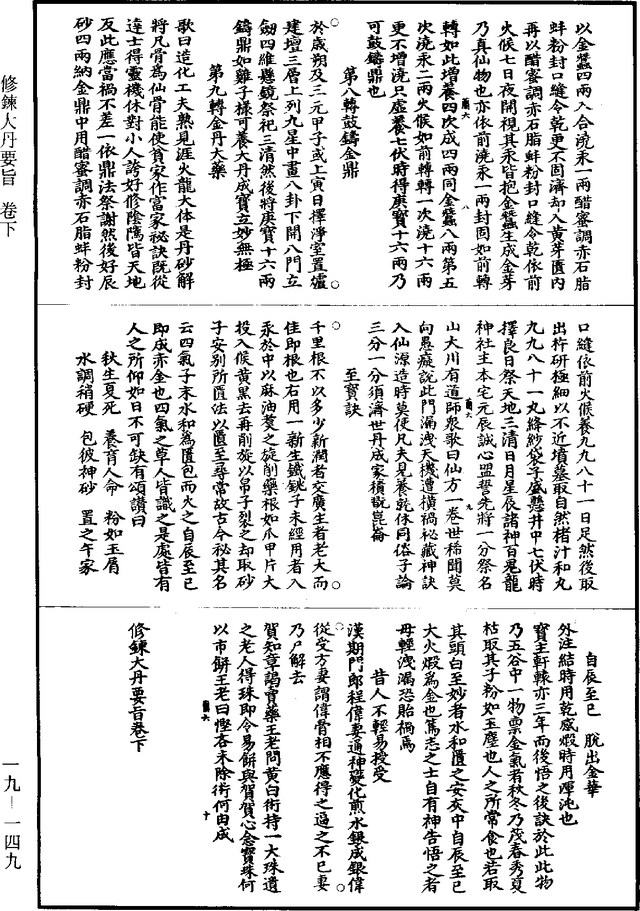 修鍊大丹要旨 卷下
以金蠶四兩入合澆汞一兩醋蜜調赤石脂
蚌粉封口縫令乾更不固濟却入黃芽匱內
再以醋蜜調赤石脂蚌粉封口縫令乾依前
火候七日夜開視其汞皆抱金蠶生成金芽
乃真仙物也亦依前澆汞一兩封固如前轉
轉如此增養四次成四兩同金蠶八兩第五
次澆汞二兩火候如前轉轉一次澆十六兩
更不增澆只虛養七伏時得庚寶十六兩乃
可鼓鑄鼎也
第八轉鼓鑄金鼎
於歲朔及三元甲子或上寅日擇淨室置爐
建壇三層上列九星中畫八卦下開八門立
劒四維懸鏡祭祀三清然後將庚寶十六兩
鑄鼎如雞子樣可養大丹成寶立妙無極
第九轉金丹大藥
歌曰造化工夫熟見涯火龍大体是丹砂解
將凡骨為仙骨能使貧家作富家秘訣旣從
達士得靈機休對小人誇好修陰隲皆天地
反此應當禍不差一依鼎法祭謝然後好辰
砂四兩納金鼎中用醋蜜調赤石脂蚌粉封
口縫依前火候養九九八十一日足然後取
出杵研極細以不近墳墓取自然楮汁和丸
九九八十一丸絳紗袋子盛懸井中七伏時
擇良日祭天地三清日月星辰諸神百鬼龍
神社主本宅元辰誠心盟誓先將一分祭名
山大川有道師衆歌曰仙方一卷世稀聞莫
向愚癡說此門漏洩天機遭橫禍秘藏神訣
入仙源造時莫使凡夫見養乾休同俗子論
三分一分須濟世丹成家積翫崑崙
至寶訣
千里根不以多少新濶者交廣生者老大而
佳即根也右用一新生鐵銚子未經用者入
汞於中以麻油煑之旋削藥根如爪甲片大
投入候黃黑去再削旋以帛子裂之却取砂
子安別所匱法以匱至尋常故古今秘其名
云四氣子末水和為匱包而火之自辰至巳
即成赤金也四氣之草人皆識之是處皆有
人之所仰如日不可缺有頌讚曰
秋生夏死 養育人命 粉如玉屑
水調稍硬 包彼神砂 置之午家
自辰至巳 脫出金華
外注結時用乾感煅時用渾沌也
寶主軒轅亦三年而後悟之後訣於此此物
乃五谷中一物禀金氣者秋冬乃茂春秀夏
枯取其子粉如玉塵也人之所常食也若取
其頭白至妙者水和匱之安灰中自辰至巳
大火煅為金也篤志之士自有神告悟之者
毋輕洩漏恐貽禍焉
昔人不輕易授受
漢期門郎程偉妻通神變化煎水銀成銀偉
從受方妻謂偉骨相不應得之逼之不已妻
乃尸解去
賀知章謁賣藥王老問黃白術持一大珠遺
之老人得珠即令易餅與賀賀心念寶珠何
以市餅王老曰慳吝未除術何由成
修鍊大丹要旨卷下
一九－一四九